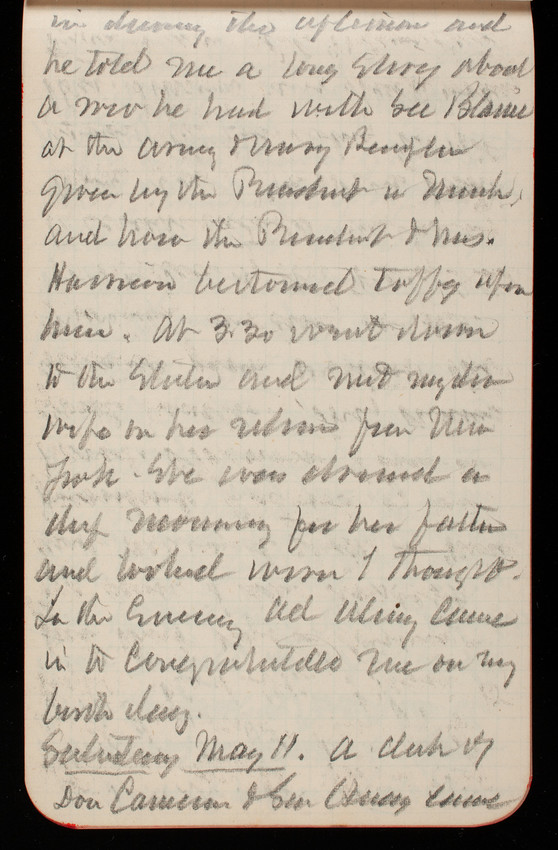 in during the afternoon and
he told me a long story about
a row he had with Sec Blaine
at the Army & Navy Reception
given by the President in March,
and how the President & Mrs.
Harrison bestowed taffy upon
him. At 3.30 went down
to the Station and met my dear
wife on her return from New
York. She was dressed in
deep mourning for her father
and looked worn I thought.
In the Evening Ad came
in to Congratulate me on my
birth day.
Saturday May 11. A
Don Cameron & Gen came